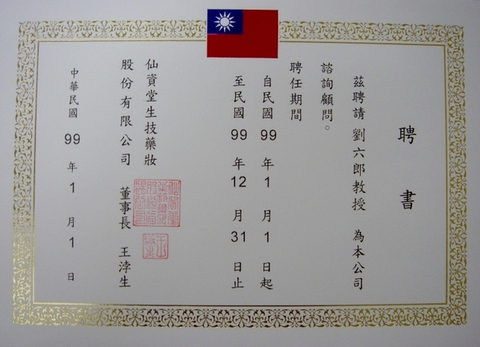 聘書
茲聘請 劉六郎教授 為本公司
諮詢顧問。
聘任期間
自民國 99 年 1 月 1 日起
至民國 99 年 12 月 31 日止
仙資堂生技藥妝
股份有限公司 董事長 王浡生
中華民國 99 年 1 月 1 日